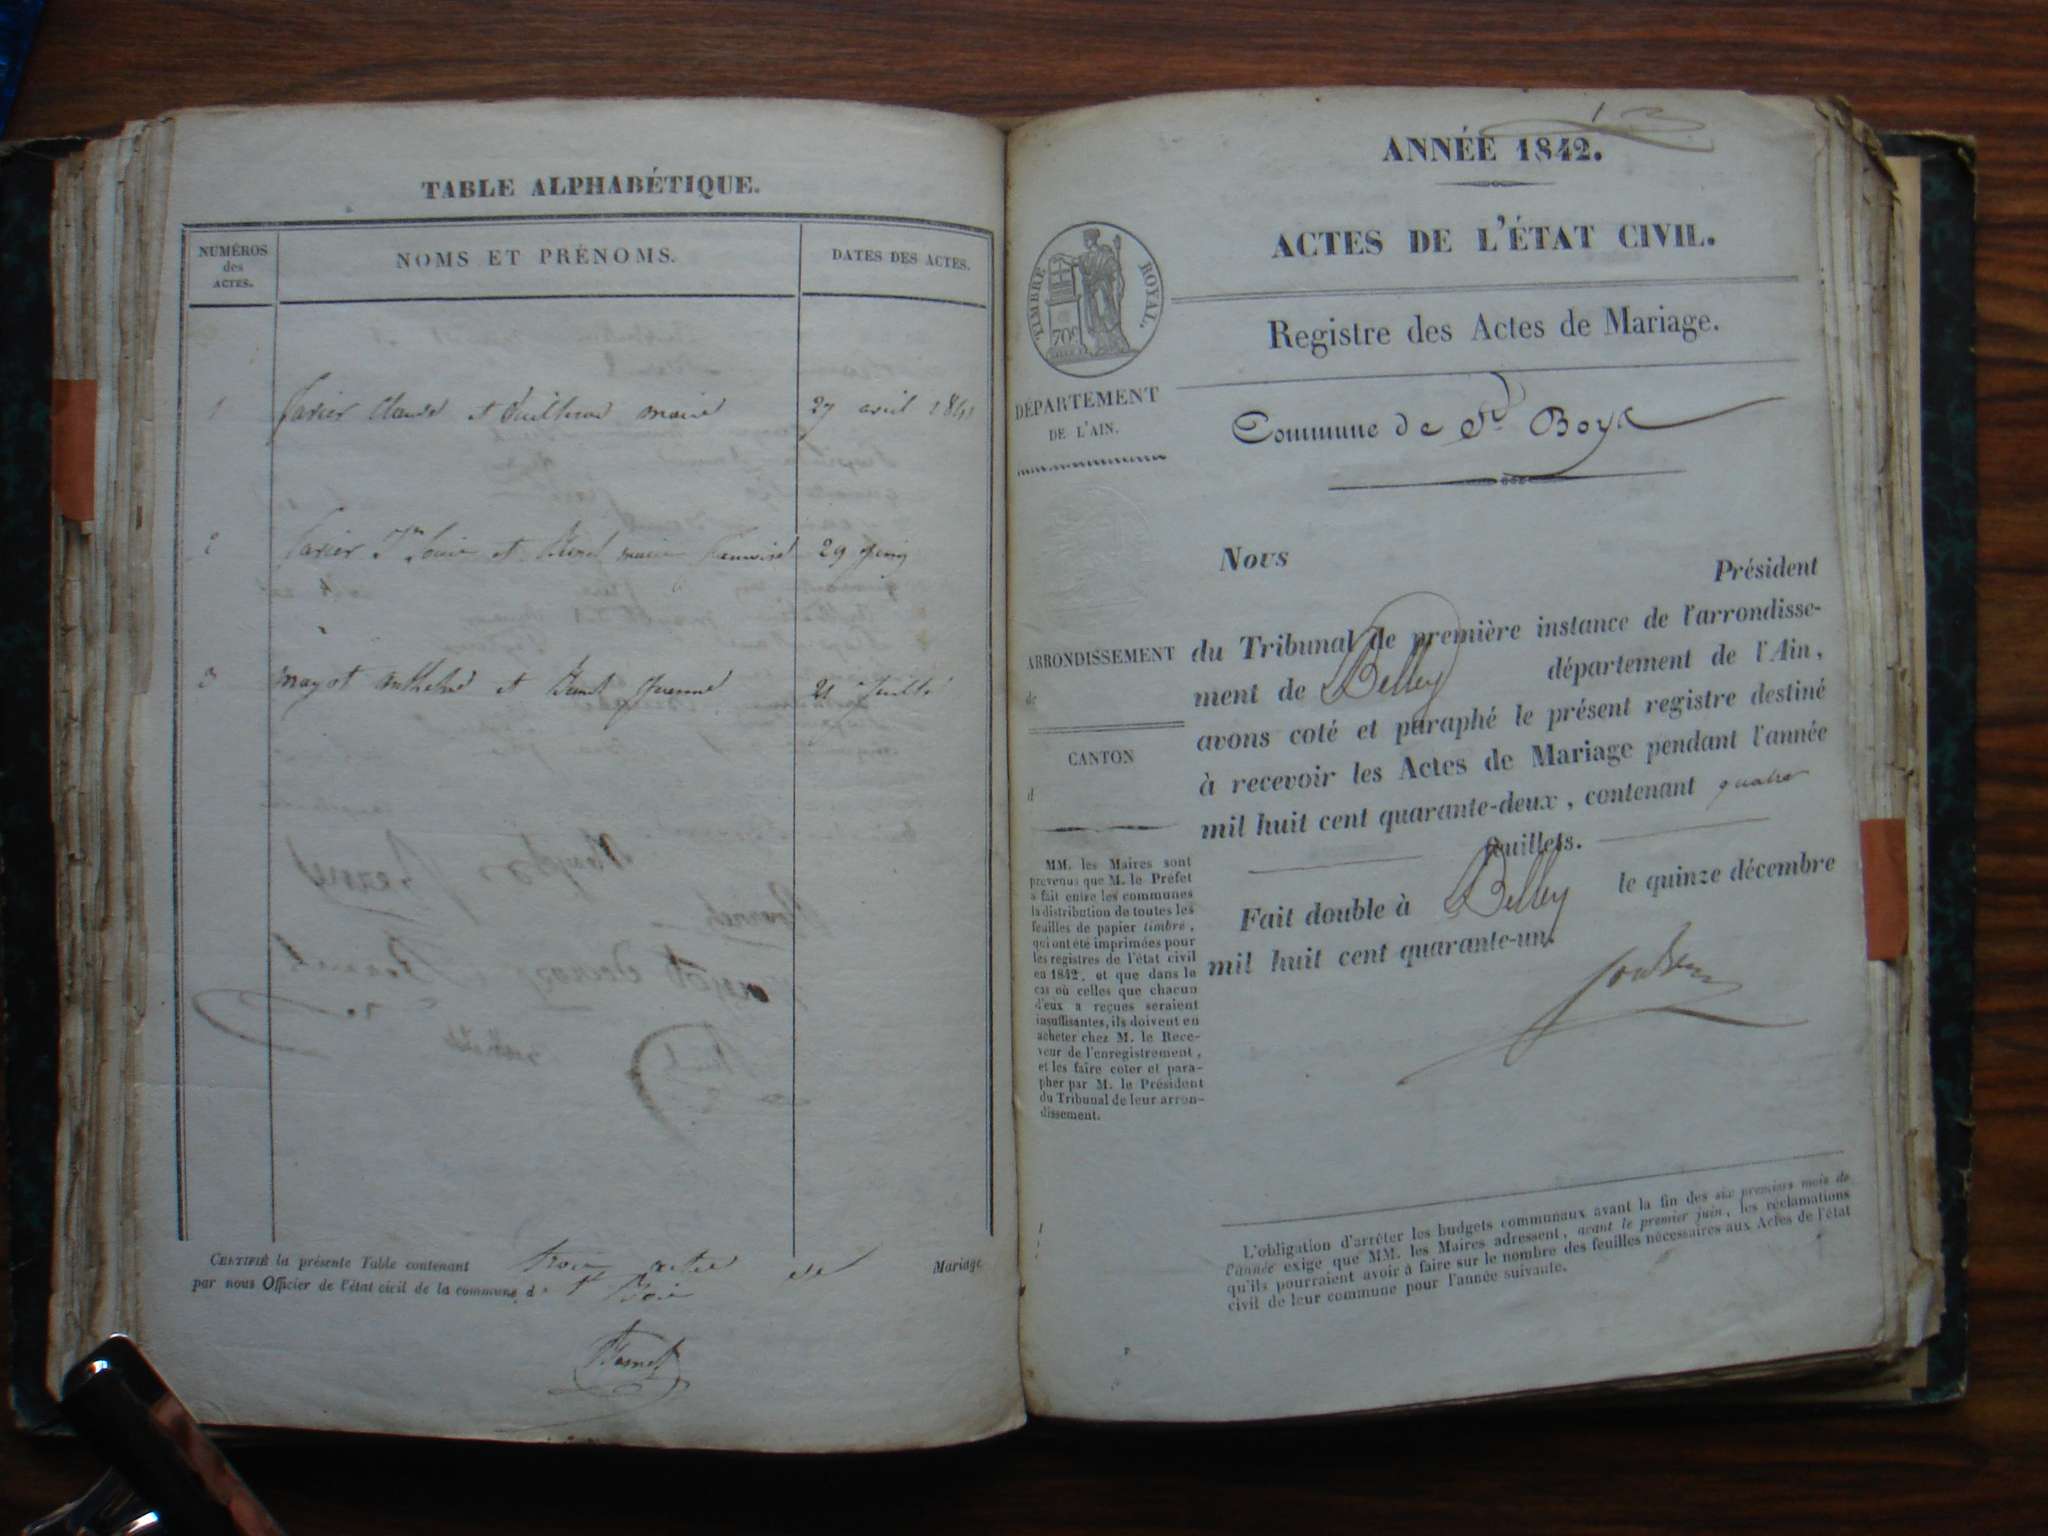 TABLE ALPHABÉTIQUE.
NUMÉROS
des
ACTES.
NOMS ET PRÉNOMS.
DATES DES ACTES.
1 Favier Claude et Guillerme marie 27 avril 1841
2 Favier Jn Louis et marie 29 juin
3 mayot anthelme et 21 Juillet
CERTIFIÉ la présente Table contenant trois actes de Mariage
par nous Officier de l'état civil de la commune d St Boie
ANNÉE 1842.
ACTES DE L'ÉTAT CIVIL.
Registre des Actes de Mariage.
TIMBRE ROYAL.
70c
DÉPARTEMENT
DE L'AIN.
Commune de St Boys
Nous
Président
du Tribunal de première instance de l'arrondisse-
ment de Belley département de l'Ain,
avons coté et paraphé le présent registre destiné
à recevoir les Actes de Mariage pendant l'année
mil huit cent quarante-deux, contenant quatre
feuillets.
Fait double à Belley le quinze décembre
mil huit cent quarante-un.
ARRONDISSEMENT
de
CANTON
d
MM. les Maires sont
prévenus que M. le Préfet
a fait entre les communes
la distribution de toutes les
feuilles de papier timbré,
qui ont été imprimées pour
les registres de l'état civil
en 1842, et que dans le
cas où celles que chacun
d'eux a reçues seraient
insuffisantes, ils doivent en
acheter chez M. le Rece-
veur de l'enregistrement,
et les faire coter et para-
pher par M. le Président
du Tribunal de leur arron-
dissement.
L'obligation d'arrêter les budgets communaux avant la fin des six premiers mois de
l'année exige que MM. les Maires adressent, avant le premier juin, les réclamations
qu'ils pourraient avoir à faire sur le nombre des feuilles nécessaires aux Actes de l'état
civil de leur commune pour l'année suivante.